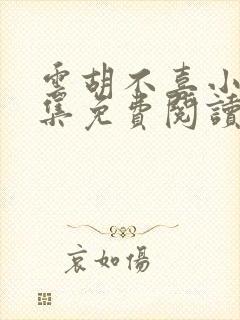 雲胡不喜小
集免費閱讀
哀如傷